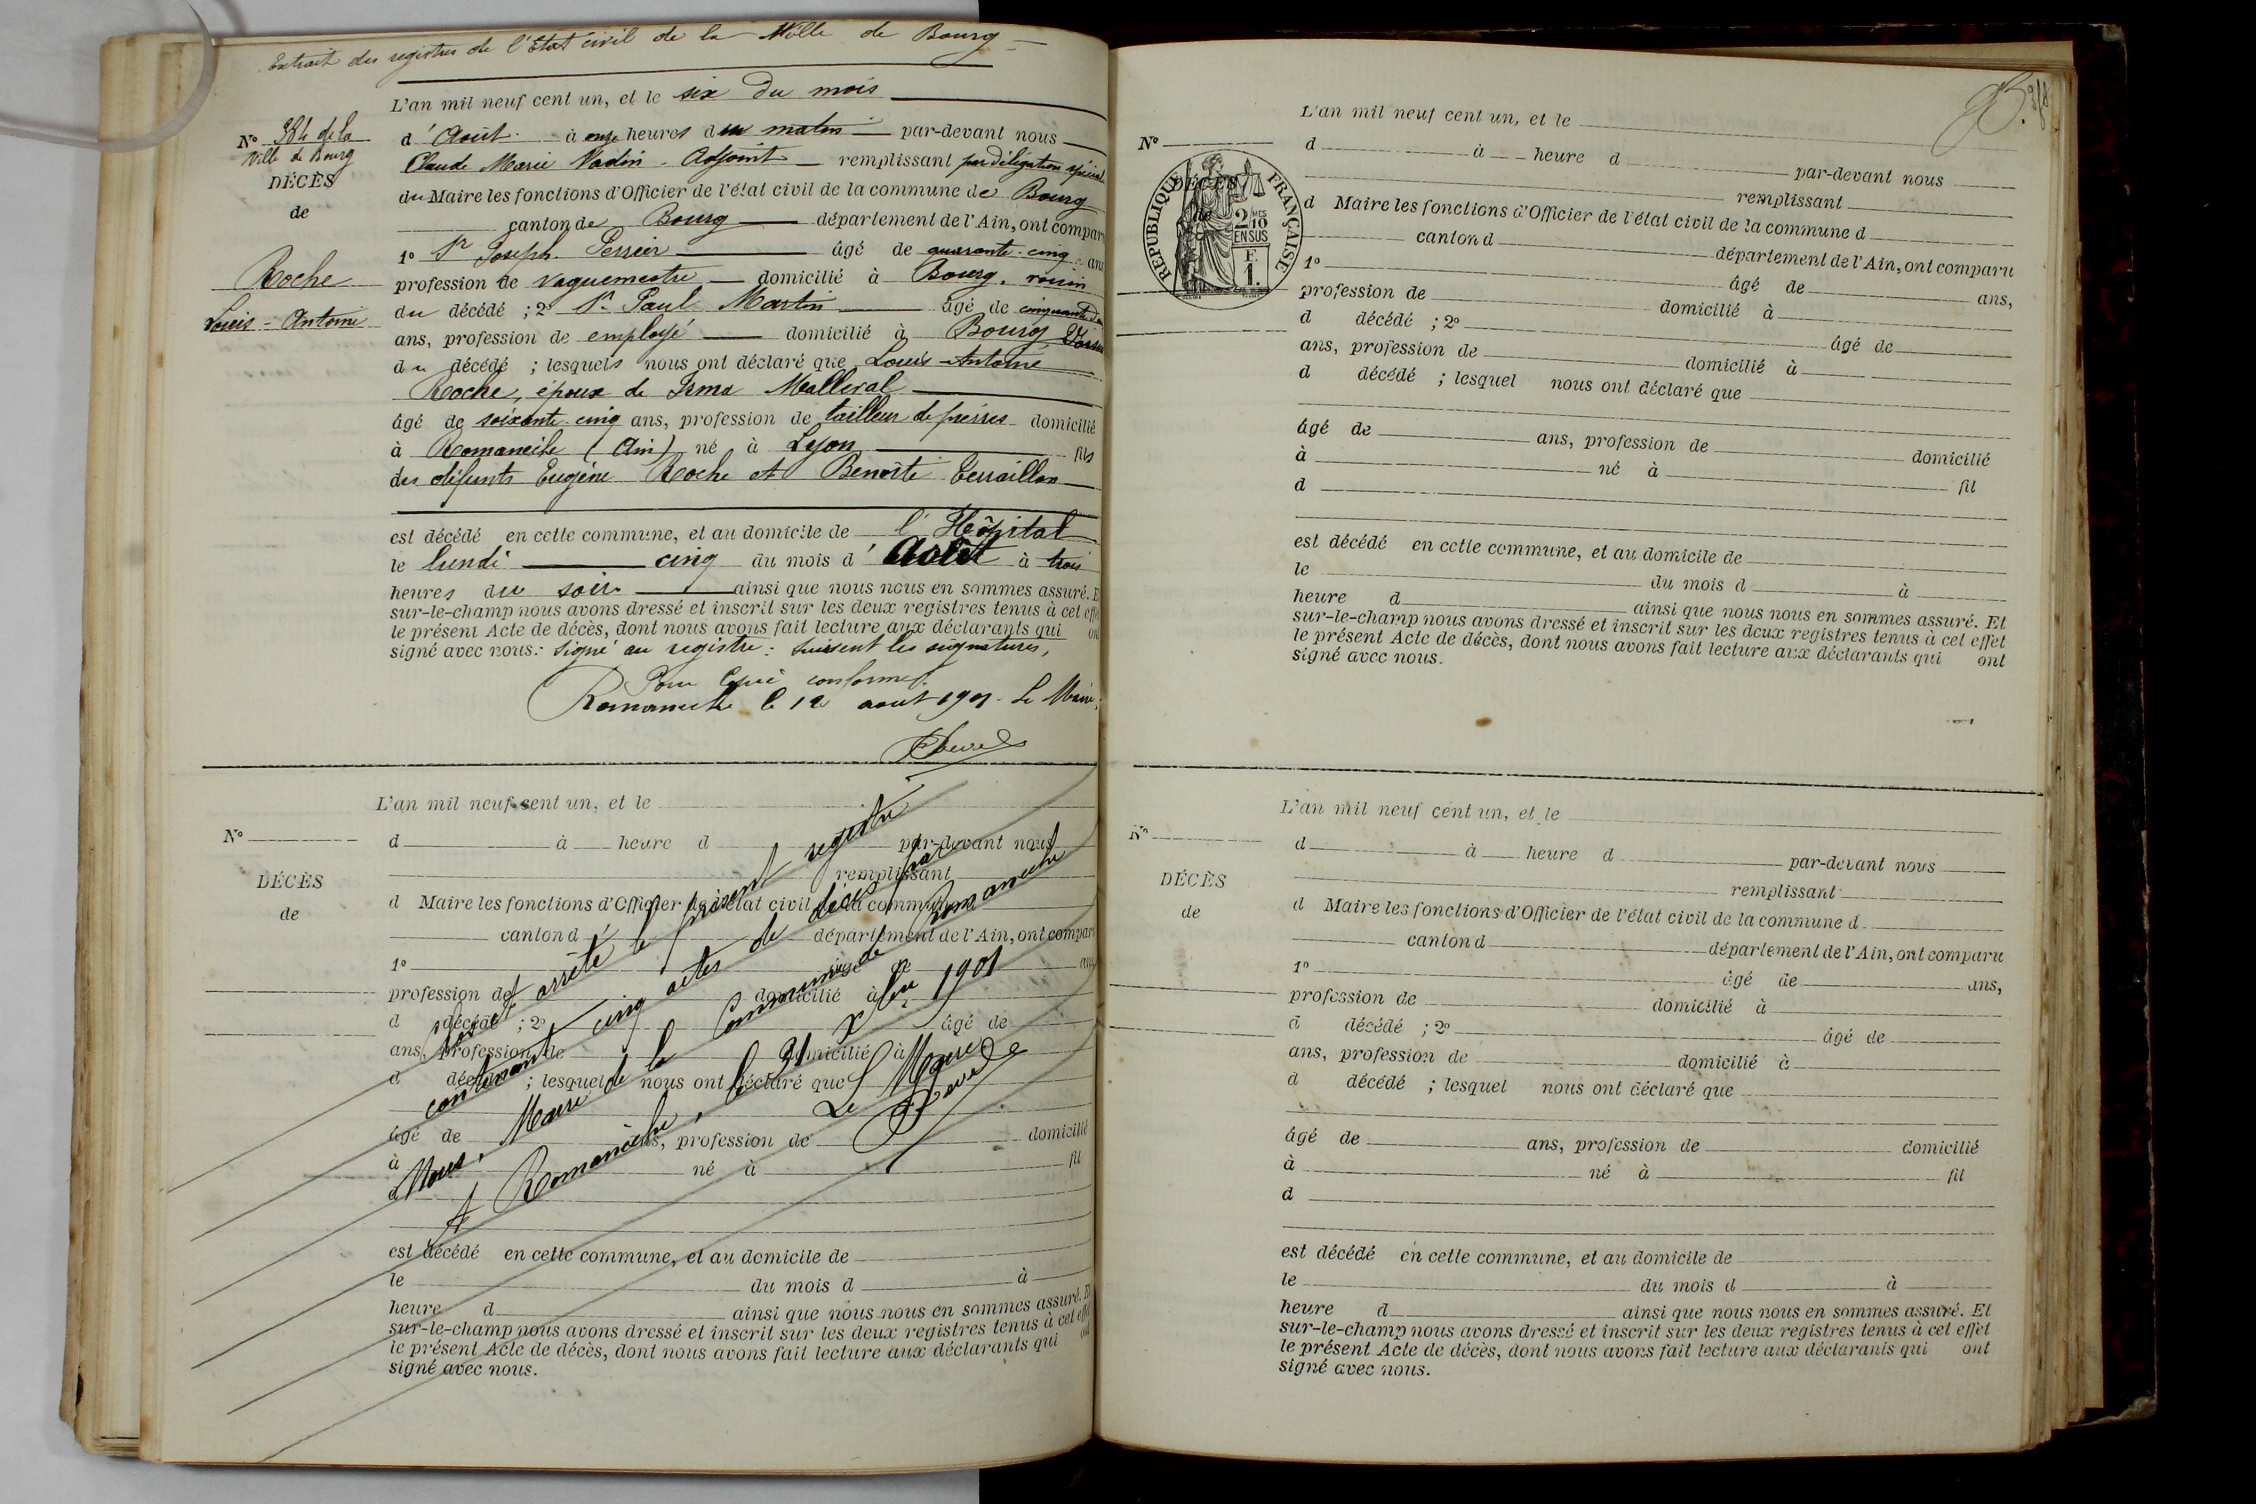 Extrait des registres de l'Etat civil de la Ville de Bourg
L'an mil neuf cent un, et le six du mois
d'Août à onze heures du matin par-devant nous
Claude Marie Vadin Adjoint remplissant par délégation spéciale
du Maire les fonctions d'Officier de l'état civil de la commune de Bourg
canton de Bourg département de l'Ain, ont compar
1º Sr Joseph Perrier âgé de quarante-cinq ans
profession de vaguemestre domicilié à Bourg, voisin
du décédé ; 2º Sr Paul Martin âgé de cinquante
ans, profession de employé domicilié à Bourg Voisin
du décédé ; lesquels nous ont déclaré que Louis-Antoine
Roche, époux de Irma Malleval
âgé de soixante-cinq ans, profession de tailleur de pierres domicilié
à Romanèche (Ain) né à Lyon fils
des défunts Eugène Roche et Benoîte Terraillon
est décédé en cette commune, et au domicile de l'Hôpital
le lundi cinq du mois d'Août à trois
heures du soir ainsi que nous nous en sommes assuré. E
sur-le-champ nous avons dressé et inscrit sur les deux registres tenus à cet effe
le présent Acte de décès, dont nous avons fait lecture aux déclarants qui ont
signé avec nous. Signé au registre : Suivent les signatures,
Pour Copie conforme.
Romanèche le 12 août 1901. Le Maire,
Nº de la
Ville de Bourg
DÉCÈS
de
Roche
Louis-Antoine
L'an mil neuf cent un, et le
d à heure d par-devant nous
remplissant
d Maire les fonctions d'Officier de l'état civil de la commune
canton d département de l'Ain, ont compar
1º âgé de ans
profession de domicilié à
d décédé ; 2º âgé de
ans, profession de domicilié à
d décédé ; lesquel nous ont déclaré que
âgé de ans, profession de domicilié
à né à fil
d
est décédé en cette commune, et au domicile de
le du mois d à
heure d ainsi que nous nous en sommes assuré. E
sur-le-champ nous avons dressé et inscrit sur les deux registres tenus à cet effe
le présent Acte de décès, dont nous avons fait lecture aux déclarants qui ont
signé avec nous.
Nº
DÉCÈS
de
Clos et arrêté le présent registre
contenant cinq actes de décès par
Nous, Maire de la Commune de Romanèche
A Romanèche, le 31 Xbre 1901
Le Maire
L'an mil neuf cent un, et le
d à heure d par-devant nous
remplissant
d Maire les fonctions d'Officier de l'état civil de la commune d
canton d département de l'Ain, ont comparu
1º âgé de ans,
profession de domicilié à
d décédé ; 2º âgé de
ans, profession de domicilié à
d décédé ; lesquel nous ont déclaré que
âgé de ans, profession de domicilié
à né à fil
d
est décédé en cette commune, et au domicile de
le du mois d à
heure d ainsi que nous nous en sommes assuré. Et
sur-le-champ nous avons dressé et inscrit sur les deux registres tenus à cet effet
le présent Acte de décès, dont nous avons fait lecture aux déclarants qui ont
signé avec nous.
Nº
DÉCÈS
de
RÉPUBLIQUE FRANÇAISE
2/10 MES
EN SUS
F.
1.
L'an mil neuf cent un, et le
d à heure d par-devant nous
remplissant
d Maire les fonctions d'Officier de l'état civil de la commune d
canton d département de l'Ain, ont comparu
1º âgé de ans,
profession de domicilié à
d décédé ; 2º âgé de
ans, profession de domicilié à
d décédé ; lesquel nous ont déclaré que
âgé de ans, profession de domicilié
à né à fil
d
est décédé en cette commune, et au domicile de
le du mois d à
heure d ainsi que nous nous en sommes assuré. Et
sur-le-champ nous avons dressé et inscrit sur les deux registres tenus à cet effet
le présent Acte de décès, dont nous avons fait lecture aux déclarants qui ont
signé avec nous.
Nº
DÉCÈS
de